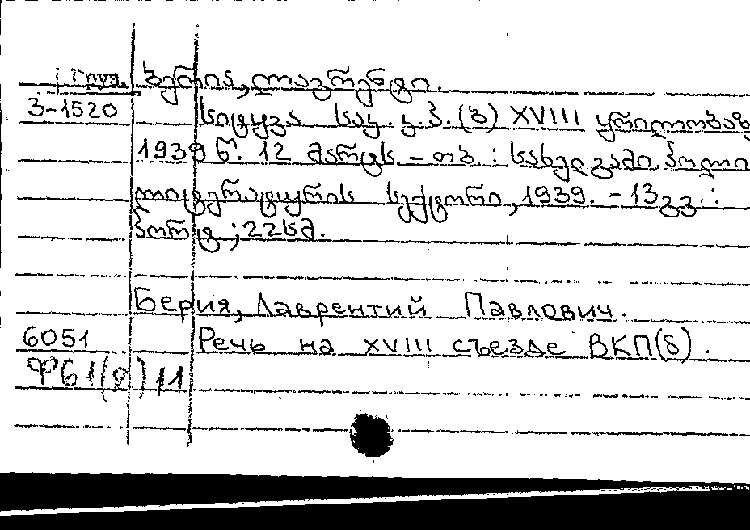 Груз. ბერია, ლავრენტი.
З-1520 სიტყვა საკ. კ. პ. (ბ) XVIII ყრილობაზ
1939 წ. 12 მარტს. - თბ.: სახელგამი. პოლი
ლიტერატურის სექტორი, 1939. - 13 გვ.:
პორტ.; 22 სმ.
Берия, Лаврентий Павлович.
6051 Речь на XVIII съезде ВКП(б).
Ф61(2)11